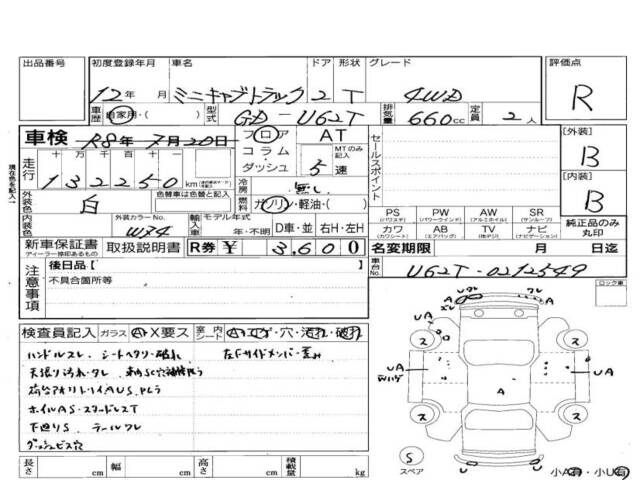 出品番号 初度登録年月 車名 ドア 形状 グレード 評価点
12年 月 ミニキャブトラック 2 T 4WD R
車歴 自家用・( ) 型式 GD-U62T 排気量 660cc 定員 2人
車検 R8年 7月20日 フロア AT セールスポイント [外装]
走行 十万 万 千 百 十 コラム・ MTのみ記入 B
132250 km ダッシュ 5速
外装色 白 色替車は色替と記入 冷房 無し [内装]
燃料 ガソリン・軽油・( ) B
内装色 外装カラーNo. W74 輸入車 モデル年式 年・不明 D車・並 右H・左H
PS PW AW SR
(パワステ) (パワーウインド) (アルミホイル) (サンルーフ)
カワ AB TV ナビ 純正品のみ
(カワシート) (エアバッグ) (ナビゲーション) 丸印
新車保証書 取扱説明書 R券 ¥ 3,600 名変期限 月 日迄
ディーラー捺印あるもの
注意事項 後日品[ ] 車台No. U62T-0212549
不具合箇所等 ロック車
検査員記入 ガラス A・X要ス 室内シート A・コゲ・穴・汚れ・破れ
ハンドルスレ、シートヘタリ・破れ 左Fサイドメンバー歪み
天張り汚れ・タレ
ホイルAS・スタッドレスT
下廻りS テールワレ
ダッシュビス穴
長さ cm 幅 cm 高さ cm 積載量 kg
現在色を記入
ス ス ス ス
UA UA A A
S
スペア 小A有・小U有